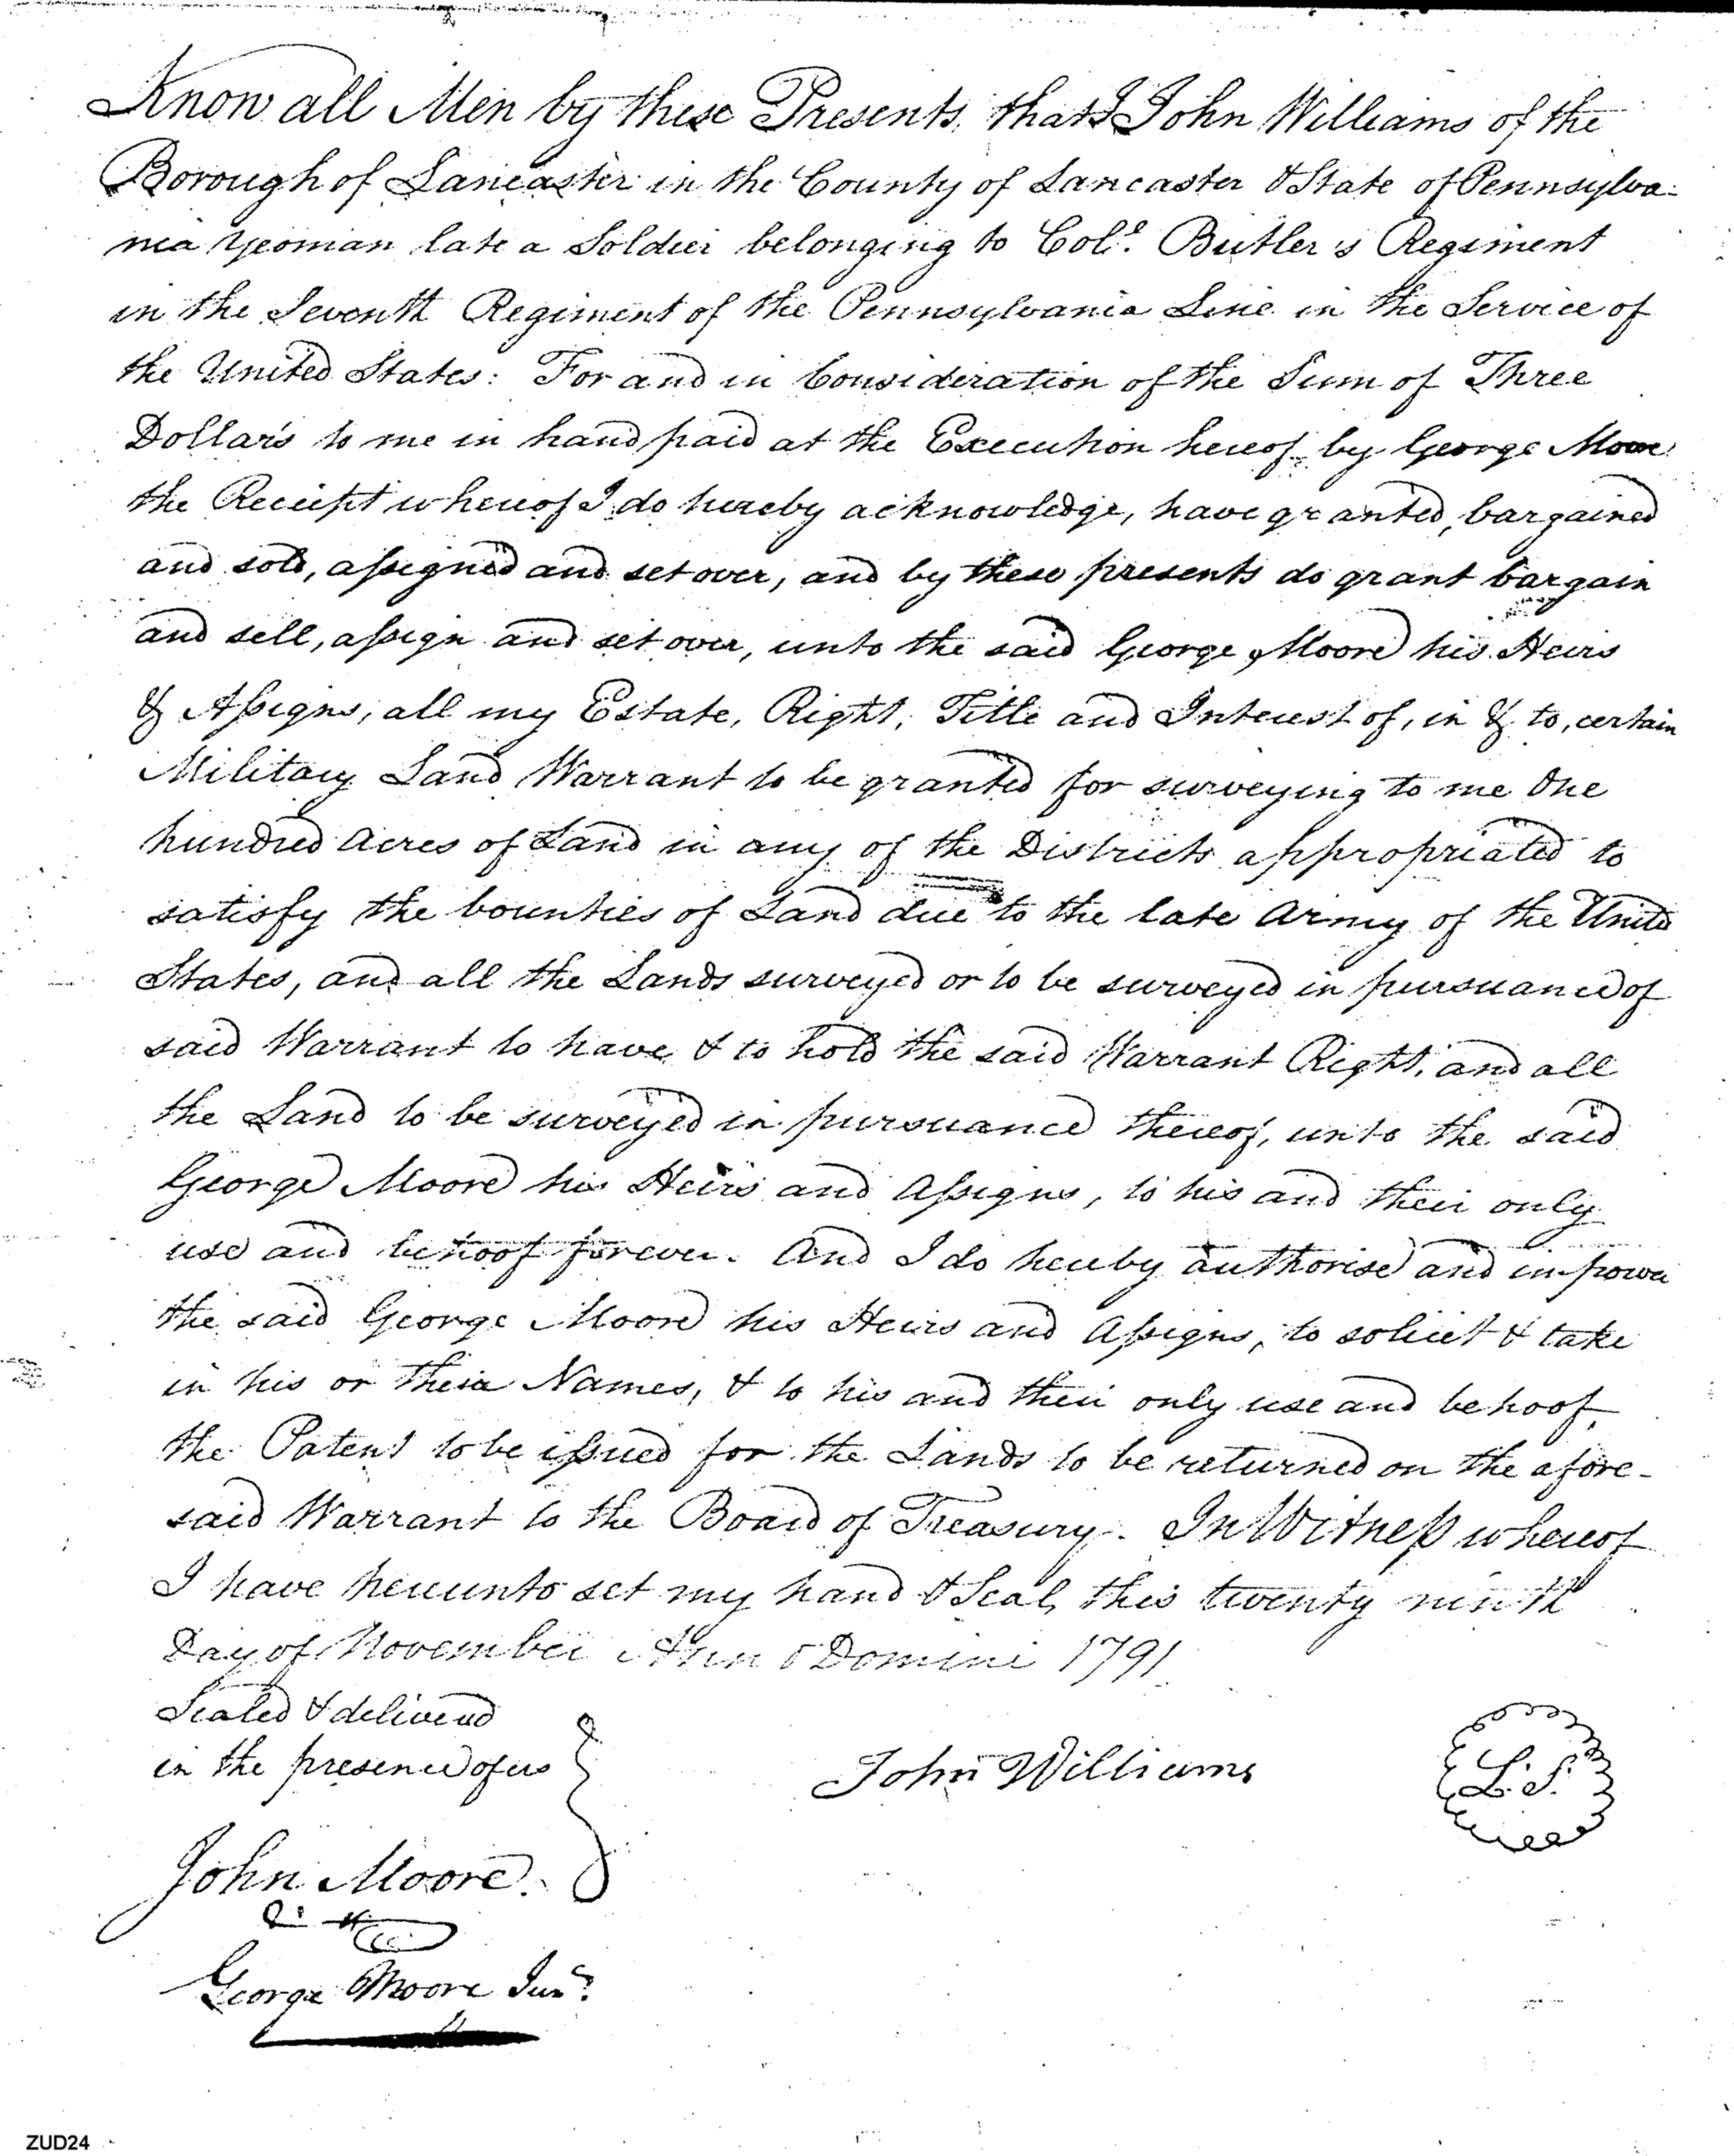 Know all Men by these Presents, that I John Williams of the
Borough of Lancaster in the County of Lancaster & State of Pennsylva-
nia Yeoman late a Soldier belonging to Col.º Butler's Regiment
in the Seventh Regiment of the Pennsylvania Line in the Service of
the United States: For and in Consideration of the Sum of Three
Dollars to me in hand paid at the Execution hereof by George Moore
the Receipt whereof I do hereby acknowledge, have granted, bargained
and sold, assigned and set over, and by these presents do grant bargain
and sell, assign and set over, unto the said George Moore his Heirs
& Assigns, all my Estate, Right, Title and Interest of, in & to, certain
Military Land Warrant to be granted for surveying to me One
hundred Acres of Land in any of the Districts appropriated to
satisfy the bounties of Land due to the late Army of the United
States, and all the Lands surveyed or to be surveyed in pursuance of
said Warrant to have & to hold the said Warrant Right, and all
the Land to be surveyed in pursuance thereof, unto the said
George Moore his Heirs and Assigns, to his and their only
use and behoof forever. And I do hereby authorise and impower
the said George Moore his Heirs and Assigns, to solicit & take
in his or their Names, & to his and their only use and behoof,
the Patent to be issued for the Lands to be returned on the afore-
said Warrant to the Board of Treasury. In Witness whereof
I have hereunto set my hand & Seal, this twenty ninth
Day of November Anno Domini 1791
Sealed & delivered
in the presence of us
John Williams
L. S.
John Moore.
George Moore Junr.
ZUD24